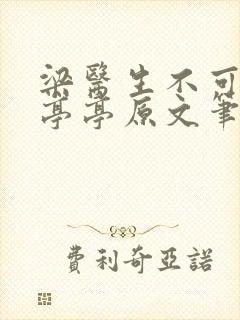 梁醫生不可
亭亭原文筆
費利奇亞諾